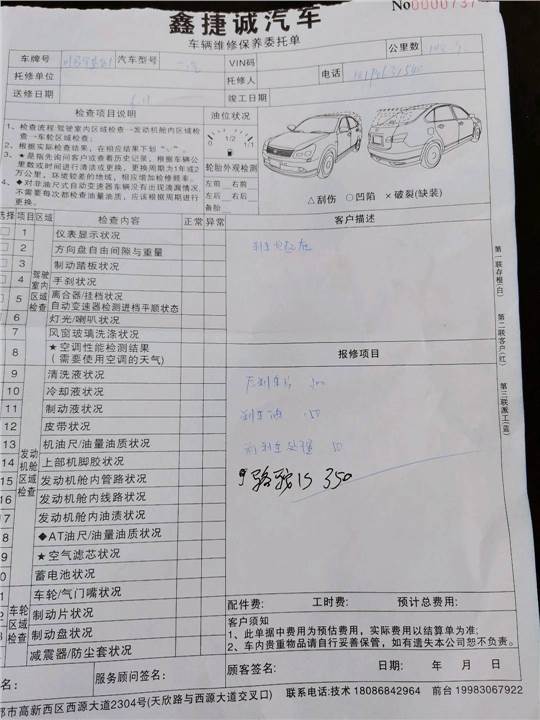 鑫捷诚汽车
No0000737
车辆维修保养委托单
公里数
车牌号 汽车型号 VIN码
托修单位 托修人 电话
送修日期 竣工日期
检查项目说明 油位状况
1、检查流程:驾驶室内区域检查→发动机舱内区域检查→车轮区域检查;
2、根据实际检查结果,在相应结果下划“√”。
3、★是指先询问客户或查看历史记录,根据车辆公里数或时间进行清洁或更换,更换周期为1年或2万公里,环境较差的地域,相应增加检修频率。
4、◆对非油尺式自动变速器车辆没有出现渗漏情况不需要每次都检查油量油质,应该根据周期进行更换。
0 1/2 1/1
轮胎外观检测
左前 右前
左后 右后
备胎
△刮伤 ○凹陷 ×破裂(缺装)
选择 项目 区域 检查内容 正常 异常 客户描述
驾驶室内区域检查
1 仪表显示状况
2 方向盘自由间隙与重量
3 制动踏板状况
4 手刹状况
5 离合器/挂档状况
自动变速器检测进档平顺状态
6 灯光/喇叭状况
7 风窗玻璃洗涤状况
8 ★空调性能检测结果
(需要使用空调的天气)
报修项目
发动机舱区域检查
9 清洗液状况
10 冷却液状况
11 制动液状况
12 皮带状况
13 机油尺/油量油质状况
14 上部机脚胶状况
15 发动机舱内管路状况
16 发动机舱内线路状况
7 发动机舱内油渍状况
8 ◆AT油尺/油量油质状况
9 ★空气滤芯状况
0 蓄电池状况
车轮区域检查
1 车轮/气门嘴状况
2 制动片状况
3 制动盘状况
减震器/防尘套状况
后刹车片 200
刹车油 150
350
第一联存根(白)
第二联客户(红)
第三联派工(蓝)
配件费: 工时费: 预计总费用:
客户须知
1、此单据中费用为预估费用,实际费用以结算单为准;
2、车内贵重物品请自行妥善保管,如有遗失本公司恕不负责。
名: 服务顾问签名: 顾客签名: 日期: 年 月 日
都市高新西区西源大道2304号(天欣路与西源大道交叉口) 联系电话:技术 18086842964 前台 19983067922